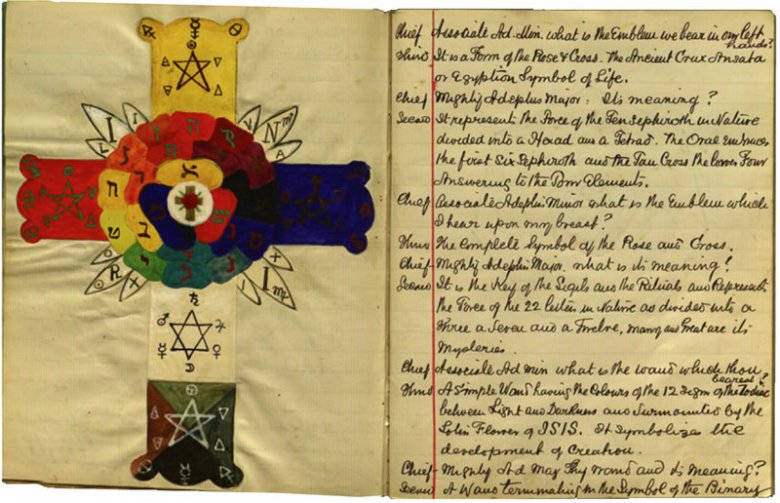 I
N
L
A
R
I
ל
ה
א
ת
Chief Associate Ad. Min. what is the Emblem we bear in our left hands?
Third It is a Form of the Rose & Cross. The Ancient Crux Ansata
or Egyptian Symbol of Life.
Chief Mighty Adeptus Major. Its meaning?
Second It represents the Force of the Ten Sephiroth in Nature
divided into a Hexad and a Tetrad. The Oval embraces
the first Six Sephiroth and the Tau Cross the lower Four
Answering to the Four Elements.
Chief Associate Adeptus Minor what is the Emblem which
I bear upon my breast?
Third The Complete Symbol of the Rose and Cross.
Chief Mighty Adeptus Major. what is its meaning?
Second It is the Key of the Sigils and the Rituals and Represents
the Force of the 22 letters in Nature as divided into a
Three a Seven and a Twelve, many and Great are its
Mysteries.
Chief Associate Ad Min what is the wand which thou bearest?
Third A Simple Wand having the Colours of the 12 Signs of the Zodiac
between Light and Darkness and Surmounted by the
Lotus Flower of ISIS. It Symbolizes the
development of Creation.
Chief Mighty Ad Maj Thy wand and its Meaning?
Second A Wand terminating in the Symbol of the Binary